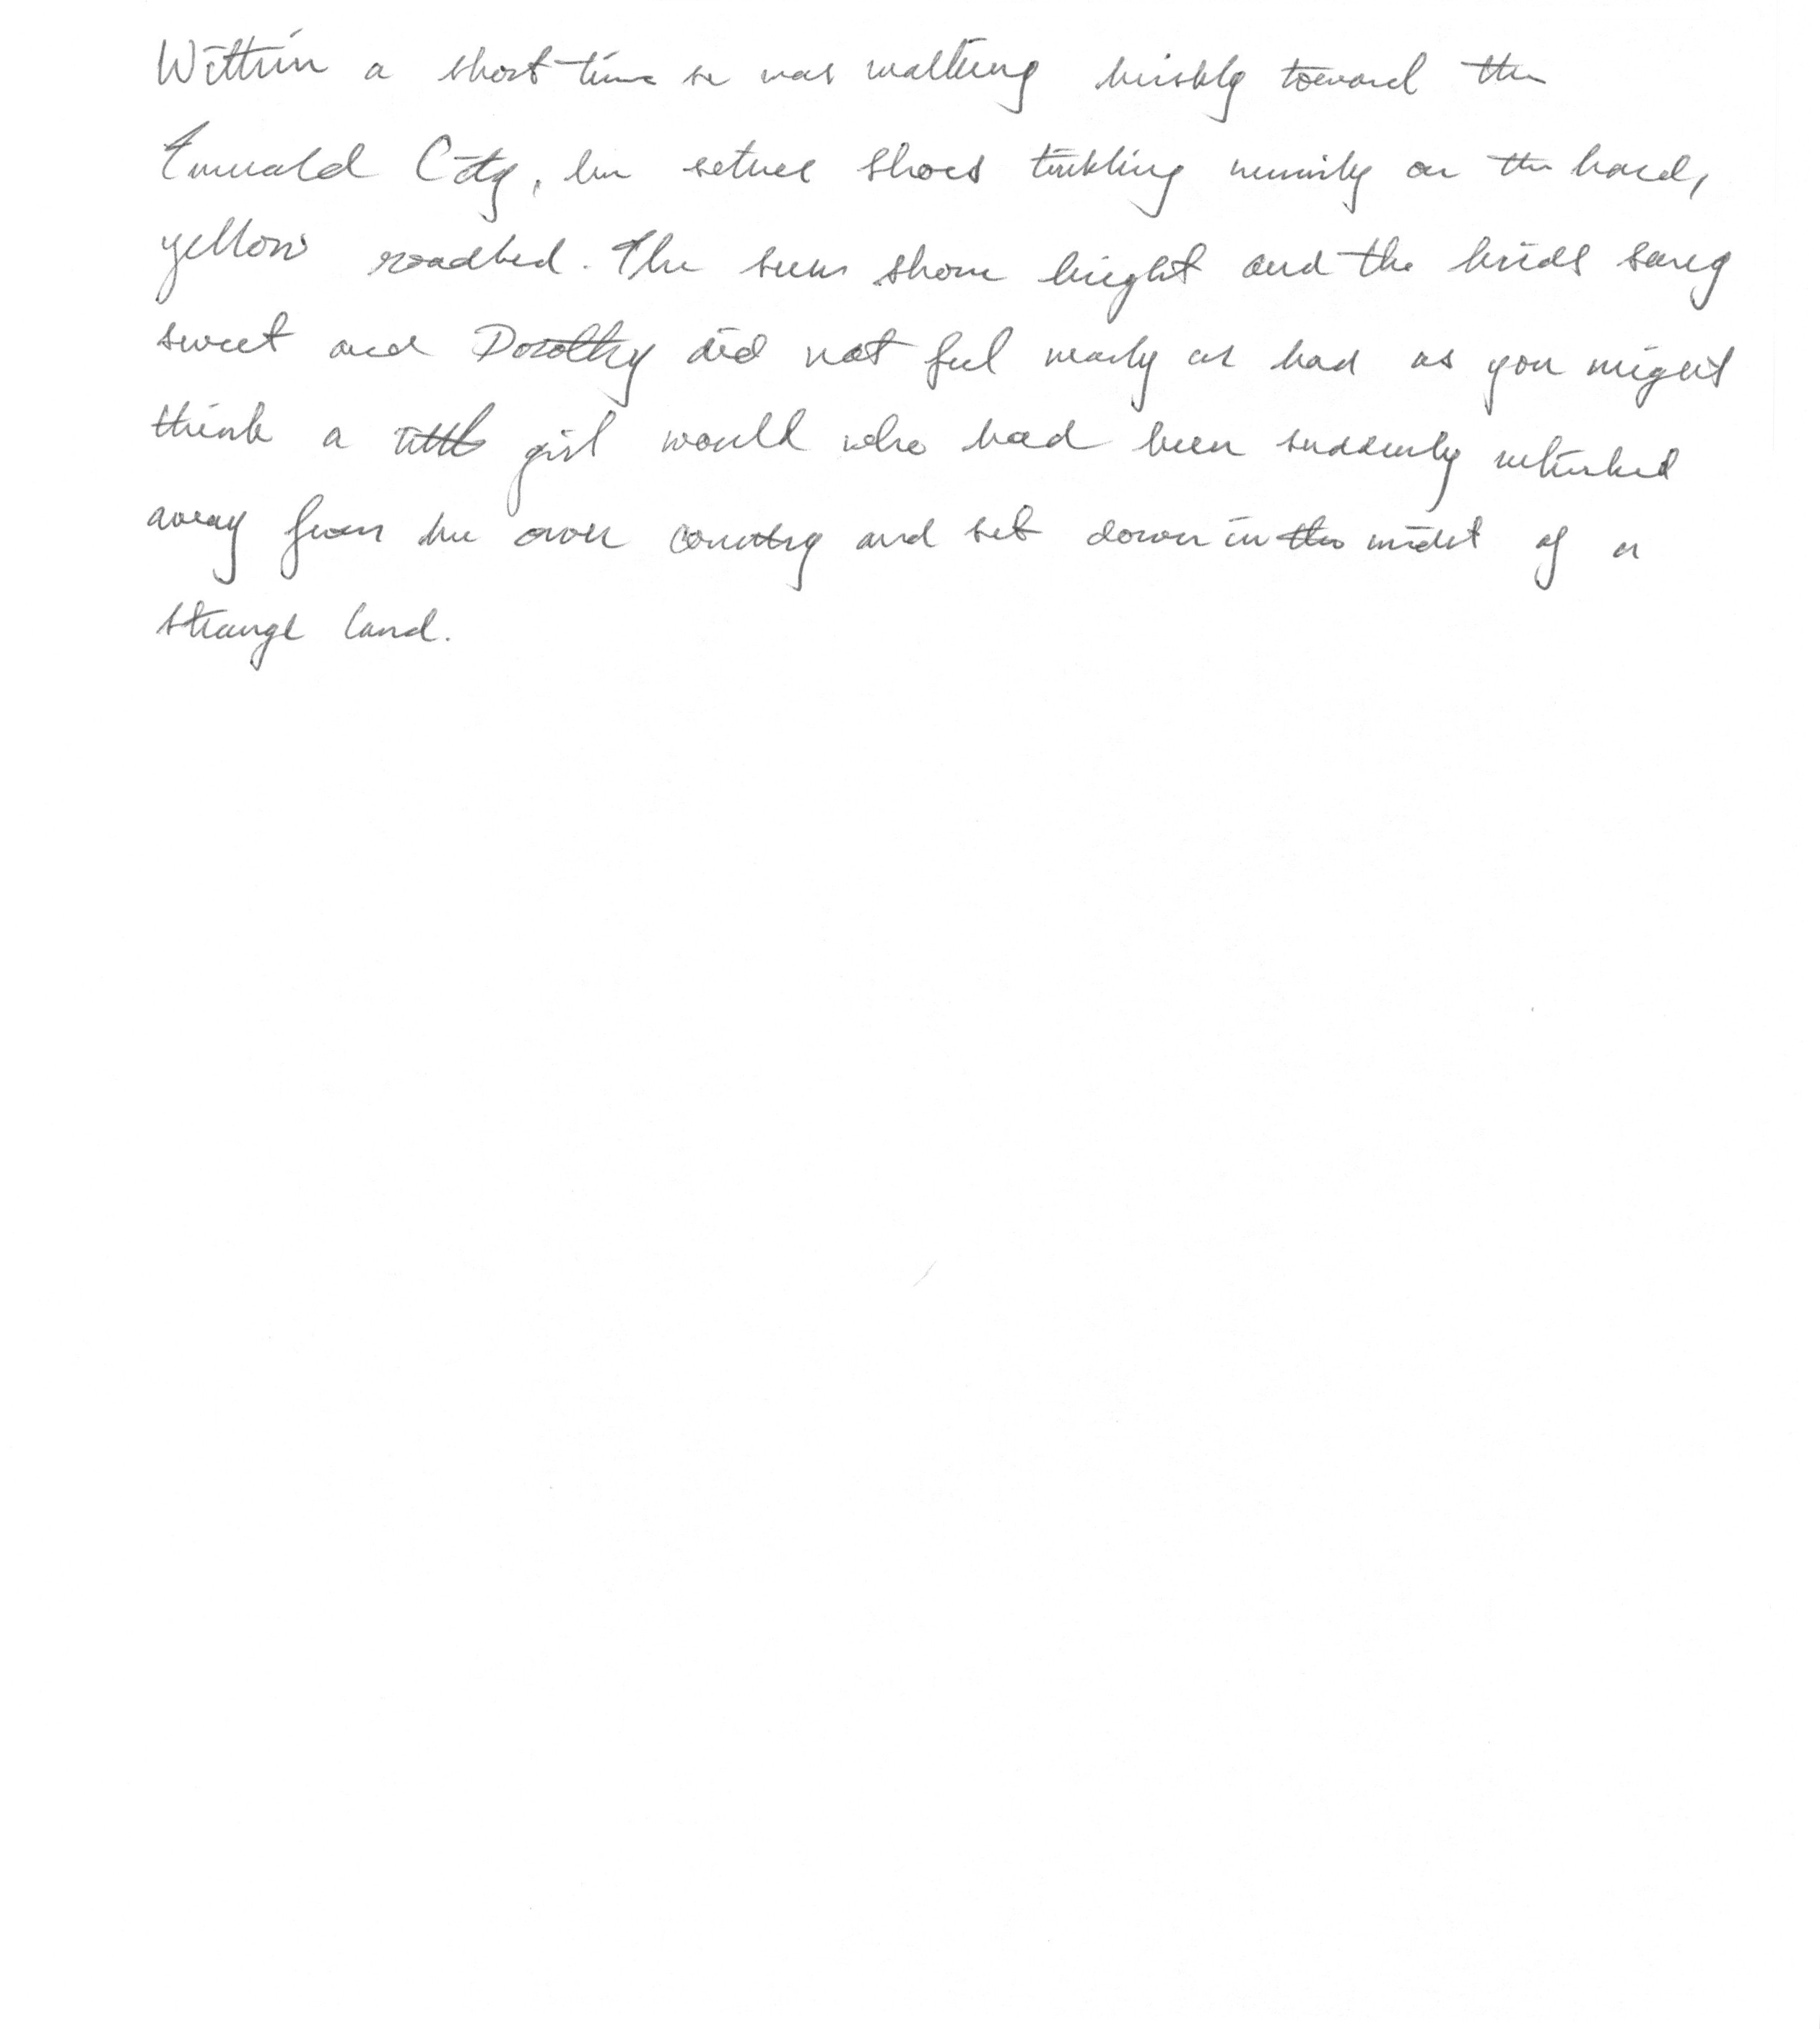 Within a short time se was walking briskly toward the
Emerald City, her silver shoes tinkling merrily on the hard,
yellow roadbed. The sun shone bright and the birds sang
sweet and Dorothy did not feel nearly as bad as you might
think a little girl would who had been suddenly whisked
away from her own country and set down in the midst of a
strange land.